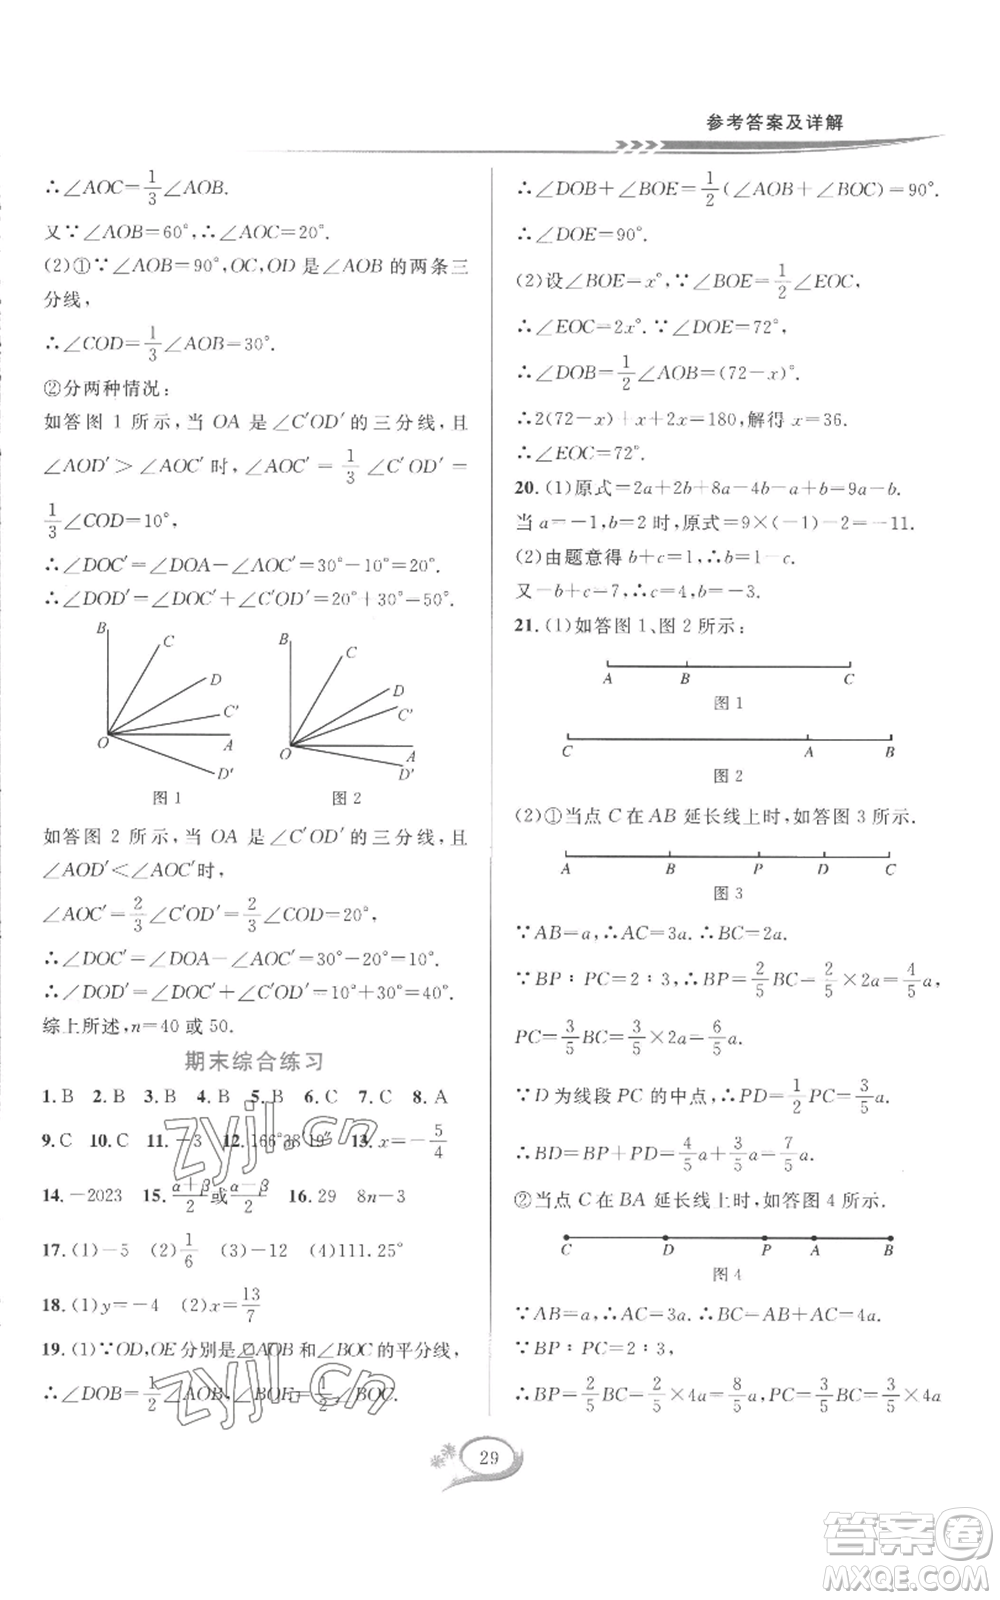 参考答案及详解
∴∠AOC=1/3∠AOB.
又∵∠AOB=60°,∴∠AOC=20°.
(2)①∵∠AOB=90°,OC,OD 是∠AOB 的两条三
分线,
∴∠COD=1/3∠AOB=30°.
②分两种情况:
如答图 1 所示,当 OA 是∠C′OD′的三分线,且
∠AOD′>∠AOC′时,∠AOC′=1/3∠C′OD′=
1/3∠COD=10°,
∴∠DOC′=∠DOA-∠AOC′=30°-10°=20°.
∴∠DOD′=∠DOC′+∠C′OD′=20°+30°=50°.
B C D C′ O A D′
图 1
B C D C′ O A D′
图 2
如答图 2 所示,当 OA 是∠C′OD′的三分线,且
∠AOD′<∠AOC′时,
∠AOC′=2/3∠C′OD′=2/3∠COD=20°,
∴∠DOC′=∠DOA-∠AOC′=30°-20°=10°.
∴∠DOD′=∠DOC′+∠C′OD′=10°+30°=40°.
综上所述,n=40 或 50.
期末综合练习
1. B 2. B 3. B 4. B 5. B 6. C 7. C 8. A
9. C 10. C 11. -3 12. 166°38′19″ 13. x=-5/4
14. -2023 15. (α+β)/2 或 (α-β)/2 16. 29 8n-3
17. (1)-5 (2)1/6 (3)-12 (4)111.25°
18. (1)y=-4 (2)x=13/7
19. (1)∵OD,OE 分别是∠AOB 和∠BOC 的平分线,
∴∠DOB=1/2∠AOB,∠BOE=1/2∠BOC.
∴∠DOB+∠BOE=1/2(∠AOB+∠BOC)=90°.
∴∠DOE=90°.
(2)设∠BOE=x°,∵∠BOE=1/2∠EOC,
∴∠EOC=2x°.∵∠DOE=72°,
∴∠DOB=1/2∠AOB=(72-x)°.
∴2(72-x)+x+2x=180,解得 x=36.
∴∠EOC=72°.
20. (1)原式=2a+2b+8a-4b-a+b=9a-b.
当 a=-1,b=2 时,原式=9×(-1)-2=-11.
(2)由题意得 b+c=1,∴b=1-c.
又-b+c=7,∴c=4,b=-3.
21. (1)如答图 1、图 2 所示:
A B C
图 1
C A B
图 2
(2)①当点 C 在 AB 延长线上时,如答图 3 所示.
A B P D C
图 3
∵AB=a,∴AC=3a.∴BC=2a.
∵BP∶PC=2∶3,∴BP=2/5BC=2/5×2a=4/5a,
PC=3/5BC=3/5×2a=6/5a.
∵D 为线段 PC 的中点,∴PD=1/2PC=3/5a.
∴BD=BP+PD=4/5a+3/5a=7/5a.
②当点 C 在 BA 延长线上时,如答图 4 所示.
C D P A B
图 4
∵AB=a,∴AC=3a.∴BC=AB+AC=4a.
∵BP∶PC=2∶3,
∴BP=2/5BC=2/5×4a=8/5a,PC=3/5BC=3/5×4a
29
zyjl.cn
zyjl.cn
答案圈
MXQE.COM